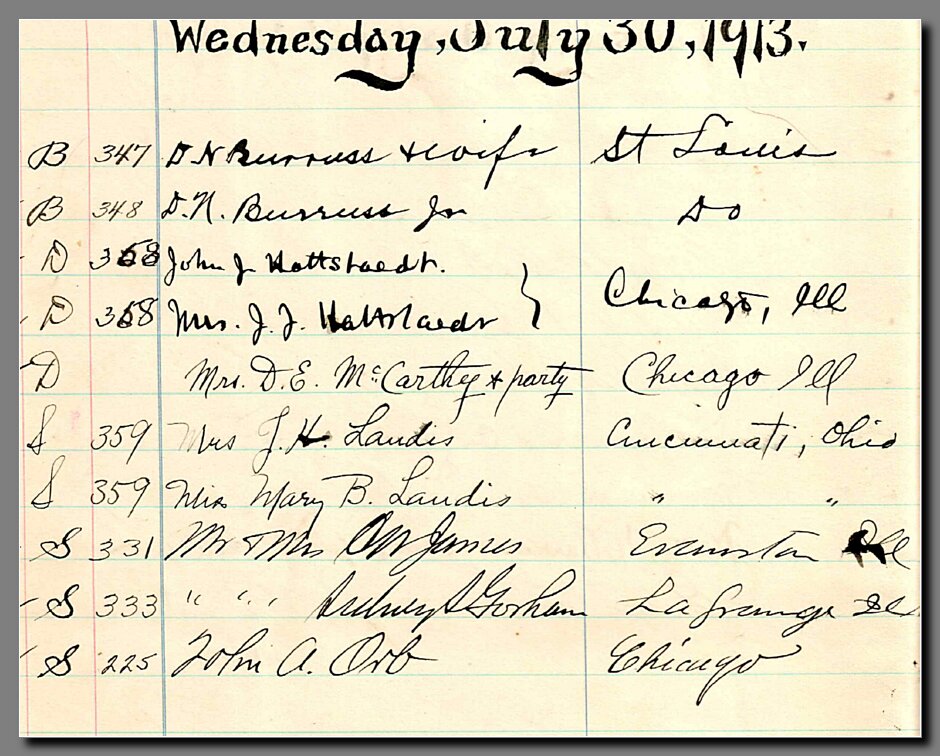 Wednesday, July 30, 1913.
B 347 D. N Burruss & wife St Louis
B 348 D. N. Burruss Jr Do
D 358 John J. Hattstaedt.
D 358 Mrs. J. J. Hattstaedt } Chicago, Ill
D Mrs. D. E. McCarthey & party Chicago Ill
S 359 Mrs J. H. Landis Cincinnati, Ohio
S 359 Miss Mary B. Landis " "
S 331 Mr & Mrs James Evanston Ill
S 333 " " " Sidney S Gorham La Grange Ill
S 225 John A. Orb Chicago